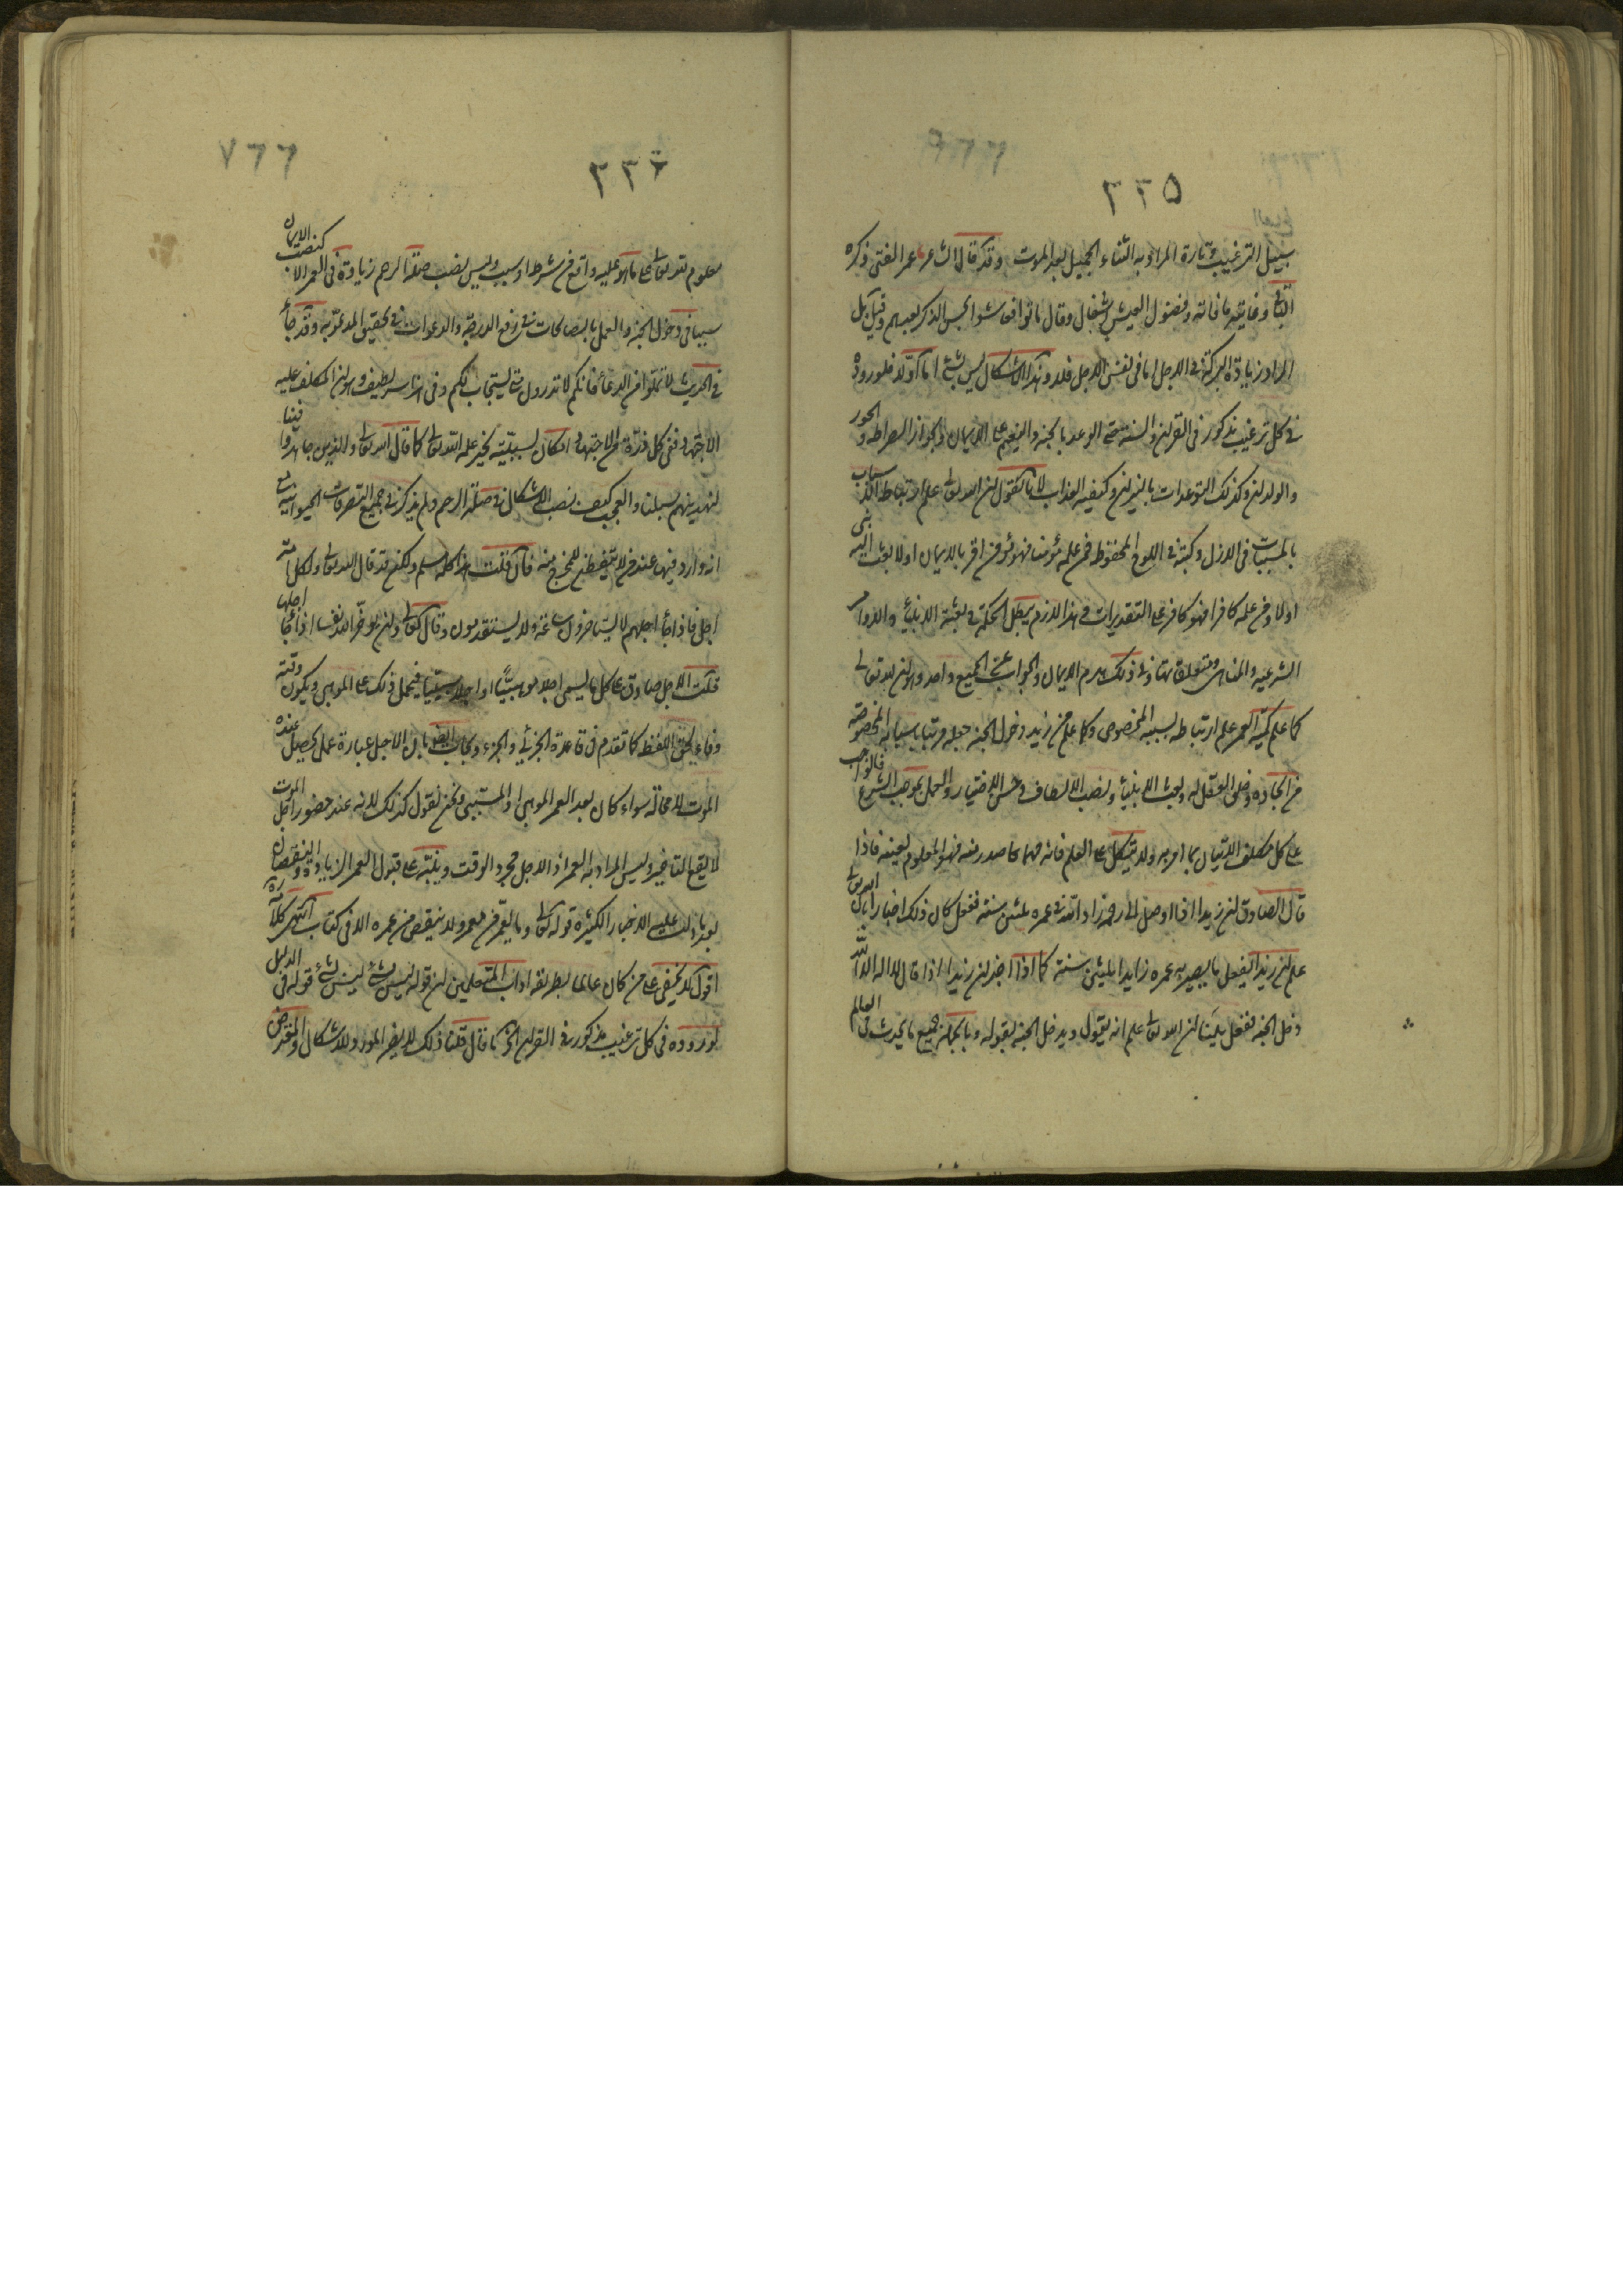 ٢٢٥
سبيل الترغيب وتارة المراد به الثناء الجميل بعد الموت وقد قال الشاعر عمر الفتى ذكره
الثاني وغايته ما فاته وفضول العيش اشغال وقال ماتوا فعاشوا بحسن الذكر بعدهم وقيل بل
المراد زيادة البركة في الاجل اما في نفس الاجل فلا وهذا الاشكال ليس بشئ اما اولا فلوروده
في كل ترغيب مذكور في القران والسنة حتى الوعد بالجنة والنعيم على الايمان وبجواز الصراط والحور
والولدان وكذلك التوعدات بالنيران وكيفية العذاب لانا نقول ان الله تعالى علم ارتباط الاسباب
بالمسببات في الازل وكتبه في اللوح المحفوظ فمن علمه مؤمنا فهو مؤمن اقر بالايمان او لا بعث اليه نبي
او لا ومن علمه كافرا فهو كافر على التقديرات وهذا لازم يبطل الحكمة في بعثة الانبياء والاوامر
الشرعية والمناهي ومتعلقاتها وفي ذلك هدم الايمان والجواب عن الجميع واحد وهو ان الله تعالى
كما علم كمية العمر علم ارتباطه بسببه المخصوص وكما علم من زيد دخول الجنة جعله مرتبا باسبابه المخصوصة
من ايجاده وخلق العقل له وبعث الانبياء ونصب الالطاف وحسن الاختيار والعمل بموجب الشرع فالواجب
على كل مكلف الاتيان بما امر به ولا يتكل على العلم فانه مهما صدر منه فهو المعلوم بعينه فاذا
قال الصادق ان زيدا اذا وصل رحمه زاد الله في عمره ثلثين سنة ففعل كان ذلك اخبارا بان الله تعالى
علم ان زيدا يفعل ما يصير به عمره زايدا ثلثين سنة كما اذا اخبر ان زيدا اذا قال لا اله الا الله
دخل الجنة ففعل تبينا ان الله تعالى علم انه يقول ويدخل الجنة بقوله وبالجملة جميع ما يحدث في العالم
٢٢٦
٢٢٧
معلوم لله تعالى على ما هو عليه واقع من شرط او سبب وليس نصب صلة الرحم زيادة في العمر الا كنصب الايمان
سببا في دخول الجنة والعمل بالصالحات في رفع الدرجة والدعوات في تحقيق المدعو به وقد جاء
في الحديث لا تملوا من الدعاء فانكم لا تدرون متى يستجاب لكم وفي هذا سر لطيف وهو ان المكلف عليه
الاجتهاد ففي كل ذرة من الاجتهاد امكان لسببيته لخير علمه الله تعالى كما قال الله تعالى والذين جاهدوا فينا
لنهدينهم سبلنا والعجب كيف نصب الاشكال في صلة الرحم ولم يذكر في جميع التصرفات الحيوانية مع
انه وارد فيها عند من لا يتفطن للخروج منه فان قلت هذا كله مسلم ولكن قد قال الله تعالى ولكل امة
اجل فاذا جاء اجلهم لا يستاخرون ساعة ولا يستقدمون وقال تعالى ولن يؤخر الله نفسا اذا جاء اجلها
قلت الاجل صادق على كل ما يسمى اجلا موهبيا او اجلا سببيا فيحمل ذلك على الموهبي ويكون وقته
وفاء بحق اللفظ كما تقدم في قاعدة الجزئي والجزء ويجاب ايضا بان الاجل عبارة عما يحصل عنده
الموت لا محالة سواء كان بعد العمر الموهبي او المسببي ونحن نقول كذلك لانه عند حضور اجل الموت
لا يقع التاخير وليس المراد به العمر اذ الاجل مجرد الوقت وينبه على قبول العمر الزيادة والنقصان
بعد ما دلت عليه الاخبار الكثيرة قوله تعالى وما يعمر من معمر ولا ينقص من عمره الا في كتاب انتهى كلامه ره
اقول لا يخفى على من كان عالما بطريقة اداب المتعلمين ان قوله ليس بشئ ليس بشئ قوله في الدليل
لوروده في كل ترغيب مذكور في القران الخ ما قال قلنا ذلك لا يضر المورد للاشكال والمعترض